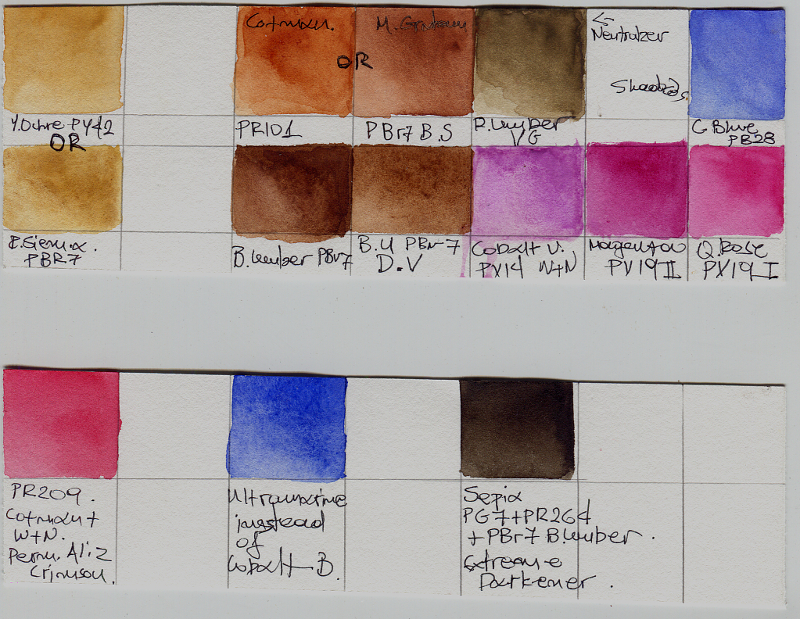 Cotman.
M. Graham
OR
← Neutralizer
Shadows
Y.Ochre PY42
OR
PR101
PBr7 B.S
R.Umber
VG
C Blue
PB28
R.Sienna.
PBR7
B.Umber PBr7
B.U PBr7
D.V
Cobalt V.
PV14 W+N
Magenta
PV19 II
Q.Rose
PV19 I
PR209.
Cotman +
W+N.
Perm. Aliz
Crimson.
Ultramarine
instead
of
Cobalt B.
Sepia
PG7+PR264
+PBr7 B.umber.
Extreme
Darkener.